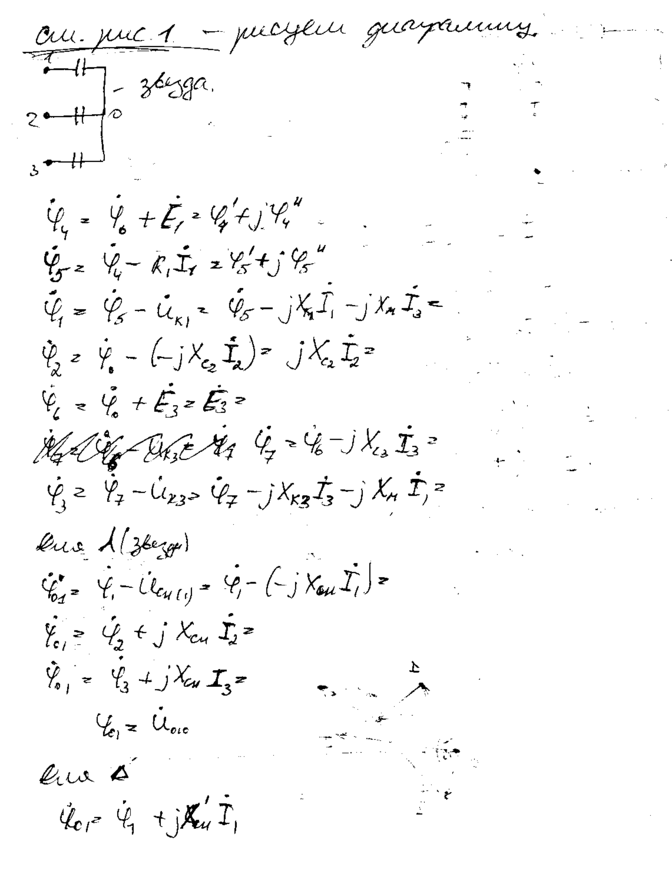 см. рис. 1. – рисуем диаграмму.
1
– звезда.
2 0
3
φ̇₄ = φ̇₀ + Ė₁ = φ₄' + jφ₄''
φ̇₅ = φ̇₄ – R₁İ₁ = φ₅' + jφ₅''
φ̇₁ = φ̇₅ – U̇к₁ = φ̇₅ – jXк₁İ₁ – jXмİ₃ =
φ̇₂ = φ̇₀ – (–jXc₂İ₂) = jXc₂İ₂ =
φ̇₆ = φ̇₀ + Ė₃ = Ė₃ =
φ̇₇ = φ̇₆ – jXc₃İ₃ =
φ̇₃ = φ̇₇ – U̇к₃ = φ̇₇ – jXк₃İ₃ – jXмİ₁ =
или λ (звезда)
φ̇₀₁ = φ̇₁ – U̇сн(1) = φ̇₁ – (–jXснİ₁) =
φ̇₀₁ = φ̇₂ + jXснİ₂ =
φ̇₀₁ = φ̇₃ + jXсн I₃ =
φ₀₁ = U̇₀₁₀
или Δ
φ̇₀₁ = φ̇₁ + jXсн' İ₁